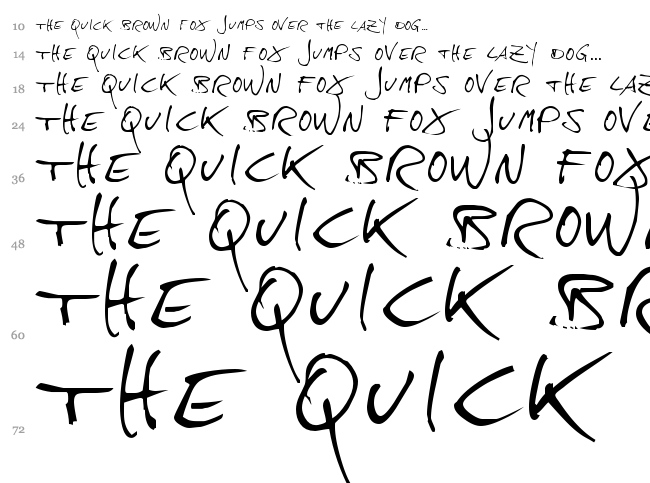 10 THE QUICK BROWN FOX JUMPS OVER THE LAZY DOG...
14 THE QUICK BROWN FOX JUMPS OVER THE LAZY DOG...
18 THE QUICK BROWN FOX JUMPS OVER THE LAZ
24 THE QUICK BROWN FOX JUMPS OVE
36 THE QUICK BROWN FOX
48 THE QUICK BROW
60 THE QUICK BR
72 THE QUICK